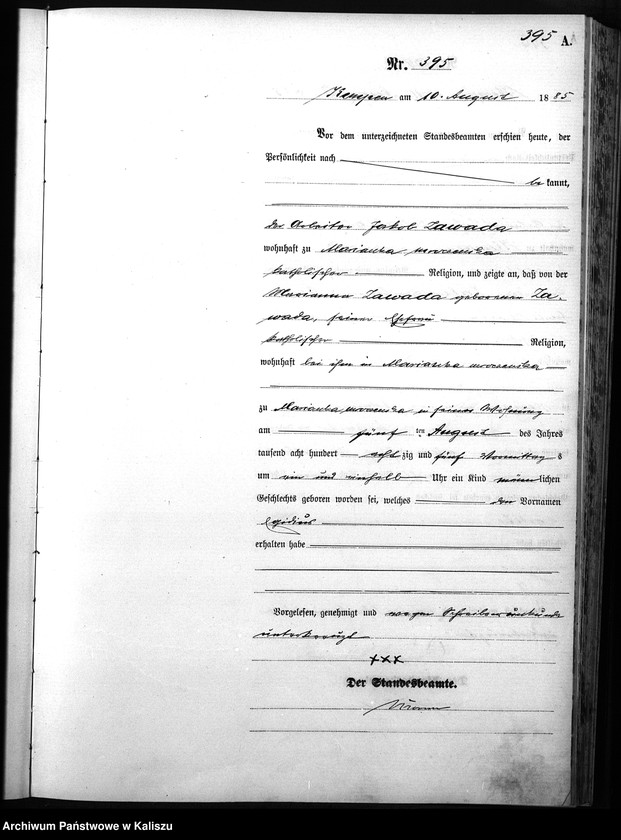 395 A.
Nr. 395
Kempen am 10. August 1885
Vor dem unterzeichneten Standesbeamten erschien heute, der
Persönlichkeit nach
be kannt,
der Arbeiter Jakob Zawada
wohnhaft zu Marianka mroczenska
katholischer Religion, und zeigte an, daß von der
Marianna Zawada geborenen Za-
wada, seiner Ehefrau
katholischer Religion,
wohnhaft bei ihm in Marianka mroczenska
zu Marianka mroczenska in seiner Wohnung
am fünf ten August des Jahres
tausend acht hundert acht zig und fünf Vormittag s
um ein und einhalb Uhr ein Kind männ lichen
Geschlechts geboren worden sei, welches den Vornamen
Egidius
erhalten habe
Vorgelesen, genehmigt und wegen Schreibensunkunde
unterkreuzt
+++
Der Standesbeamte.
Archiwum Państwowe w Kaliszu